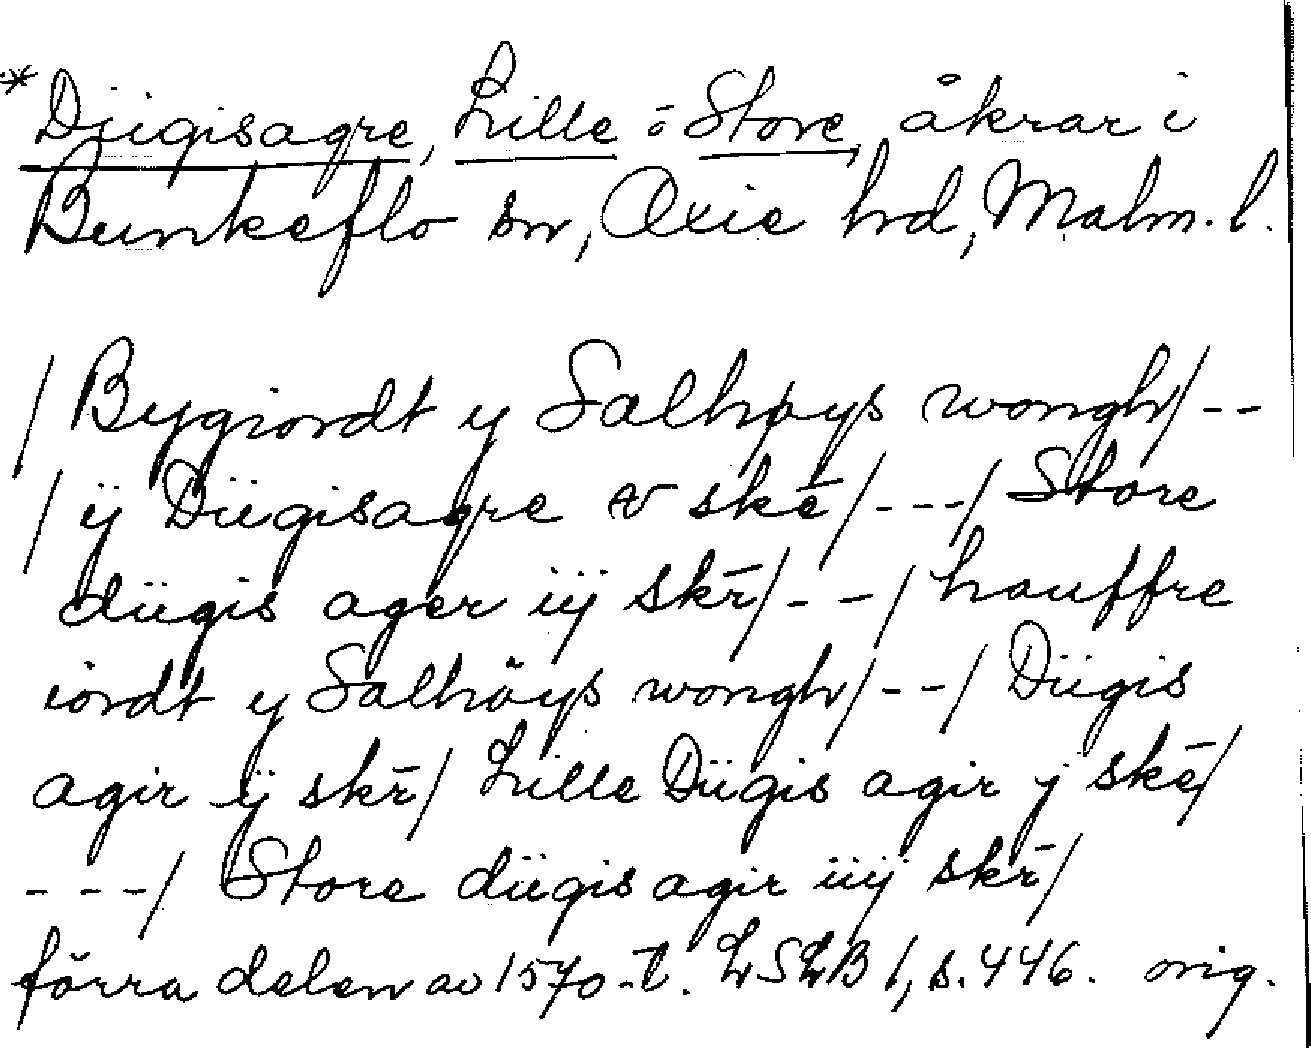 *Düigisagre, Lille o Store, åkrar i
Bunkeflo sn, Oxie hd, Malm. l.
/ Bygiordt y Salhøys wongh/--
/ ÿ Düigisagre w skē/---/ Store
düigis ager iij skr̄/--/ hauffre
iordt y Salhöys wongh/--/ Düigis
agir ij skr̄/ Lille Düigis agir j skē/
---/ Store düigis agir iiij skr̄/
förra delen av 1570-t. LSLB 1, s. 446. orig.